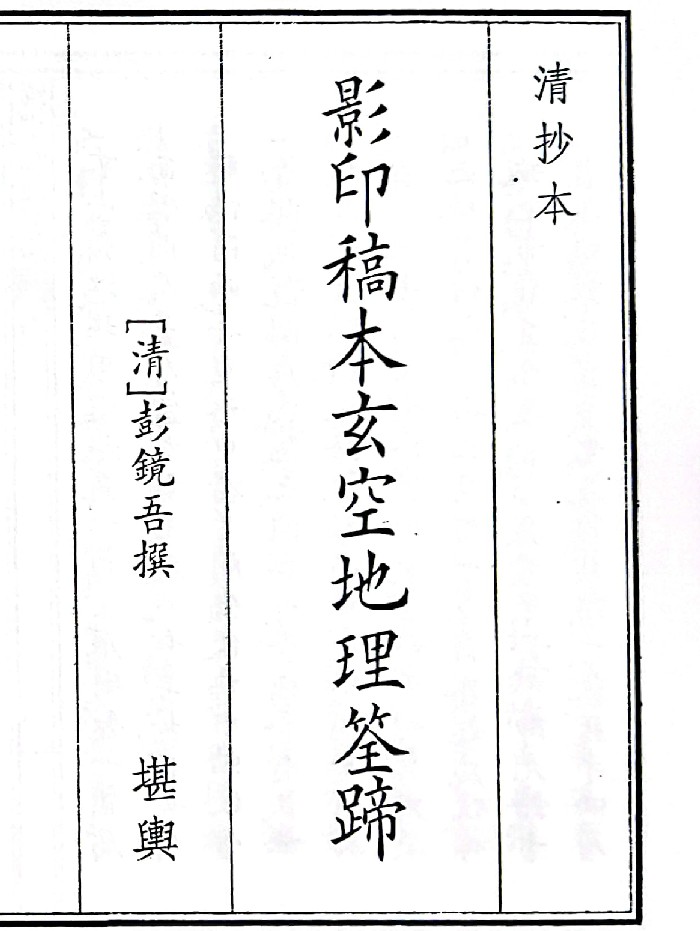 清抄本
影印稿本玄空地理筌蹄
［清］彭鏡吾撰
堪輿